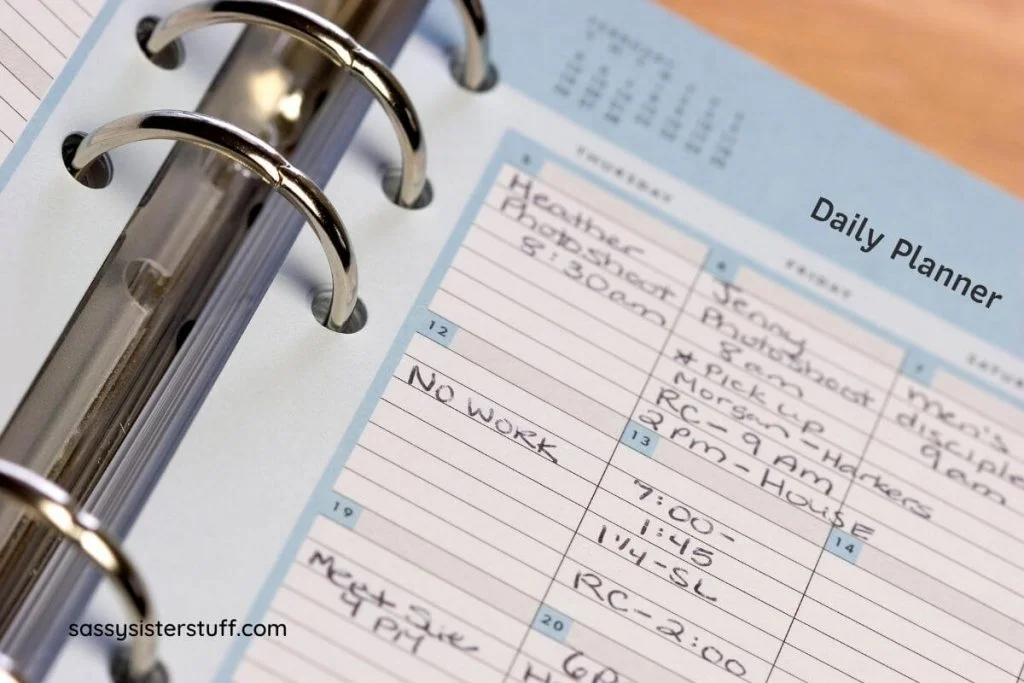 Daily Planner
THURSDAY
FRIDAY
5
Heather
Photoshoot
8:30am
6
Jenny
Photoshoot
8am
* Pick up
Morgan-Harkers
RC-9Am
2pm-HOUSE
7
men's
disciple
9am
12
NO WORK
13
7:00-
1:45
1 1/4-SL
RC-2:00
14
19
Meet Sue
4 PM
20
sassysisterstuff.com